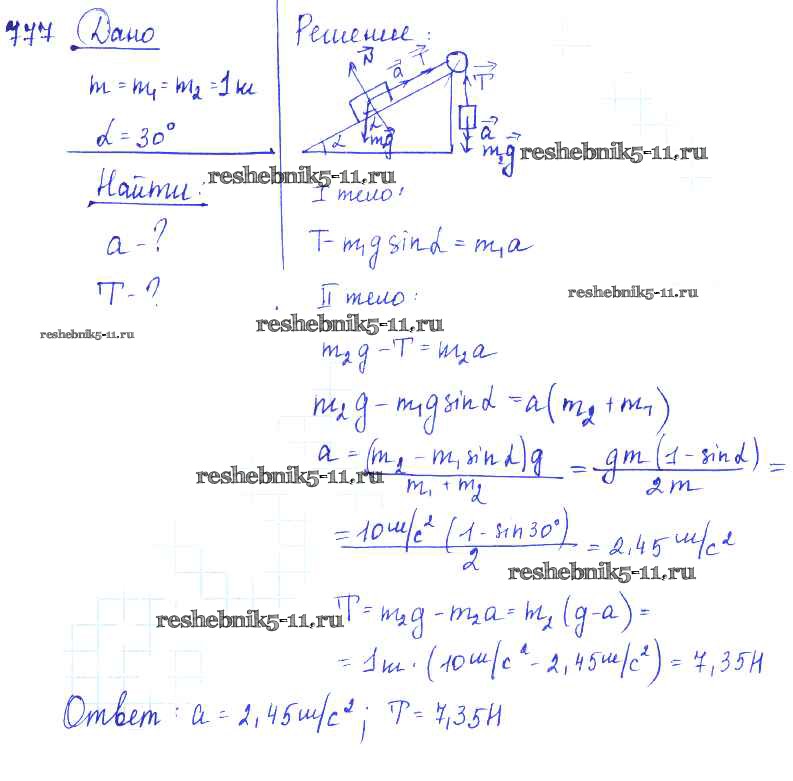 777 Дано
m = m₁ = m₂ = 1 кг
α = 30°
Найти:
a - ?
T - ?
Решение:
N⃗ a⃗ T⃗ T⃗
α α mg⃗ a⃗
m₂g⃗
reshebnik5-11.ru
reshebnik5-11.ru
I тело:
T - m₁g sinα = m₁a
reshebnik5-11.ru
II тело:
reshebnik5-11.ru
reshebnik5-11.ru
m₂g - T = m₂a
m₂g - m₁g sinα = a(m₂ + m₁)
a = (m₂ - m₁ sinα)g / m₁ + m₂ = gm(1 - sinα) / 2m =
reshebnik5-11.ru
= 10 м/с² (1 - sin30°) / 2 = 2,45 м/с²
reshebnik5-11.ru
T = m₂g - m₂a = m₂(g - a) =
reshebnik5-11.ru
= 1кг · (10 м/с² - 2,45 м/с²) = 7,35Н
Ответ: a = 2,45 м/с²; T = 7,35Н